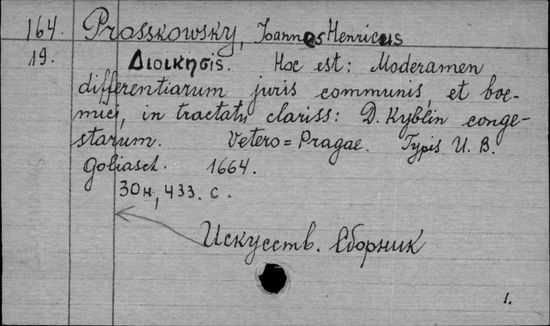 164. Prosskowsky, Ioannes Henricus
19. Διοικησις. Hoc est: Moderamen
differentiarum juris communis, et boe-
mici, in tractatu clariss: D. Kyblin conge-
starum. Vetero=Pragae. Typis U. B.
Goliasch. 1664.
30н, 433. с.
Искусств. Сборник
1.